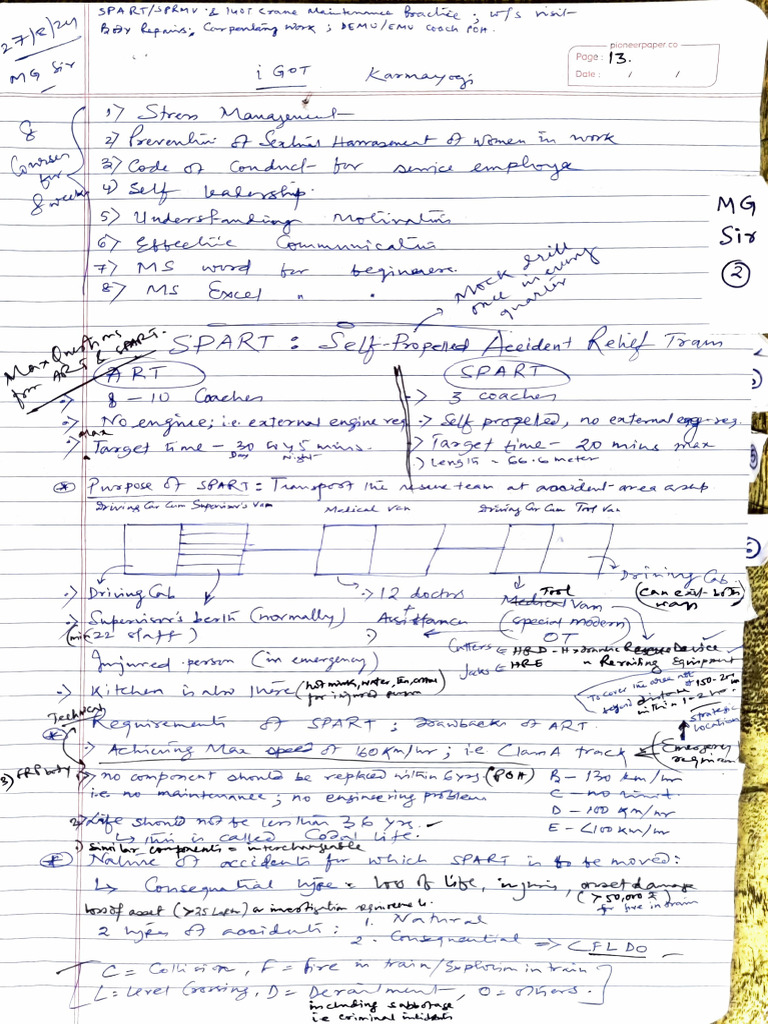 27/8/24
MG Sir
SPART/SPRMV & 140T Crane Maintenance Practice; w/s visit
Body Repairs; Carpentry work; DEMU/EMU coach POH.
pioneerpaper.co
Page: 13.
Date: / /
iGOT Karmayogi
8 Courses for 8 weeks
1) Stress Management
2) Prevention of Sexual Harrasment of women in work
3) Code of Conduct for service employee
4) Self leadership.
5) Understanding Motivation
6) Effective Communication
7) MS word for beginners.
8) MS Excel " "
Mock drill once in every quarter
MG
Sir
2
Max Questions from ART & SPART.
SPART: Self-Propelled Accident Relief Train
ART
SPART
8-10 Coaches
3 coaches
No engine; i.e. external engine req
Self propelled, no external eng. req.
max
Target time - 30 to 45 mins.
Day Night
Target time - 20 mins max
Length = 66.6 meter
Purpose of SPART = Transport the rescue team at accident area asap
Driving Car Cum Supervisor's Van
Medical Van
Driving Car Cum Tool Van
Driving Cab
12 doctors
Tool
Medical Van
Driving Cab
(Can exit both ways)
Supervisor's berth (normally)
Assistance
(special modern)
(min 22 staff)
OT
Cutters = HRD - Hydraulic Rescue Device
Injured person (in emergency)
Jacks = HRE " Rerailing Equipment
Kitchen is also there (hot milk, water, tea,
for injured person
To cover the area
distance 150-200 km
within 1-2 hr.
Technical
Requirements of SPART; Drawbacks of ART.
Strategic location
Achieving Max speed of 160 km/hr; i.e Class A track
Emergency
3) FRP body
no component should be replaced within 6 yrs (POH)
B - 130 km/hr
i.e. no maintenance; no engineering problem
C - no limit
2) Life should not be less than 36 yrs.
D - 100 km/hr
this is called Codal life.
E - <100 km/hr
similar components = interchangeable
Nature of accidents for which SPART is to be moved:
Consequential type = loss of life, injuries, asset damage
(>50,000 ₹)
for fire in train
loss of asset (>25 lakhs) or investigation requirements.
2 types of accidents: 1. Natural
2. Consequential => CFLDO
C = Collision, F = Fire in train/Explosion in train
L = Level Crossing, D = Derailment, O = others.
including sabotage
i.e criminal incidents